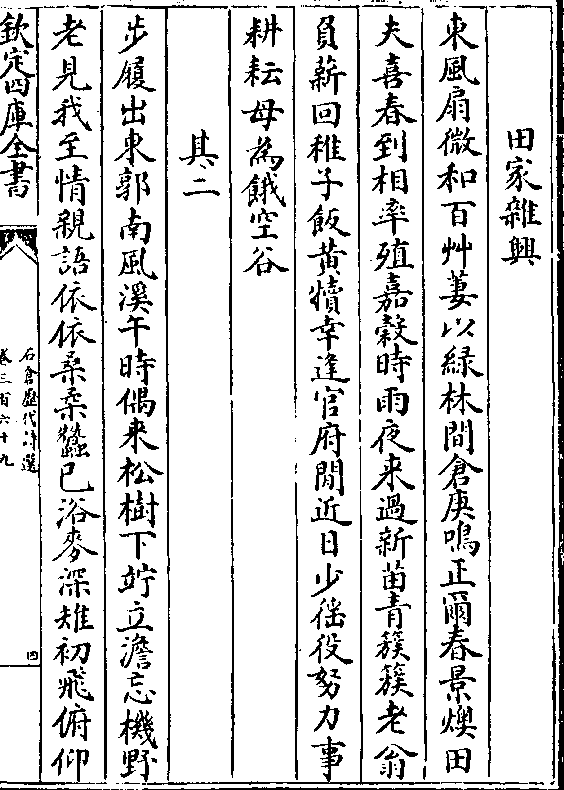 田家雜興
東風扇微和百艸萋以綠林間倉庚鳴正爾春景燠田
夫喜春到相率殖嘉穀時雨夜来過新苗青簇簇老翁
負薪回稚子飯黄犢幸逢官府閒近日少徭役努力事
耕耘母為餓空谷
其二
步屧出東郭南風溪午時偶来松樹下竚立澹忘機野
老見我至情親語依依桑柔蠶已浴麥深雉初飛俯仰
欽定四庫全書
石倉歷代詩選
卷三百六十九
四